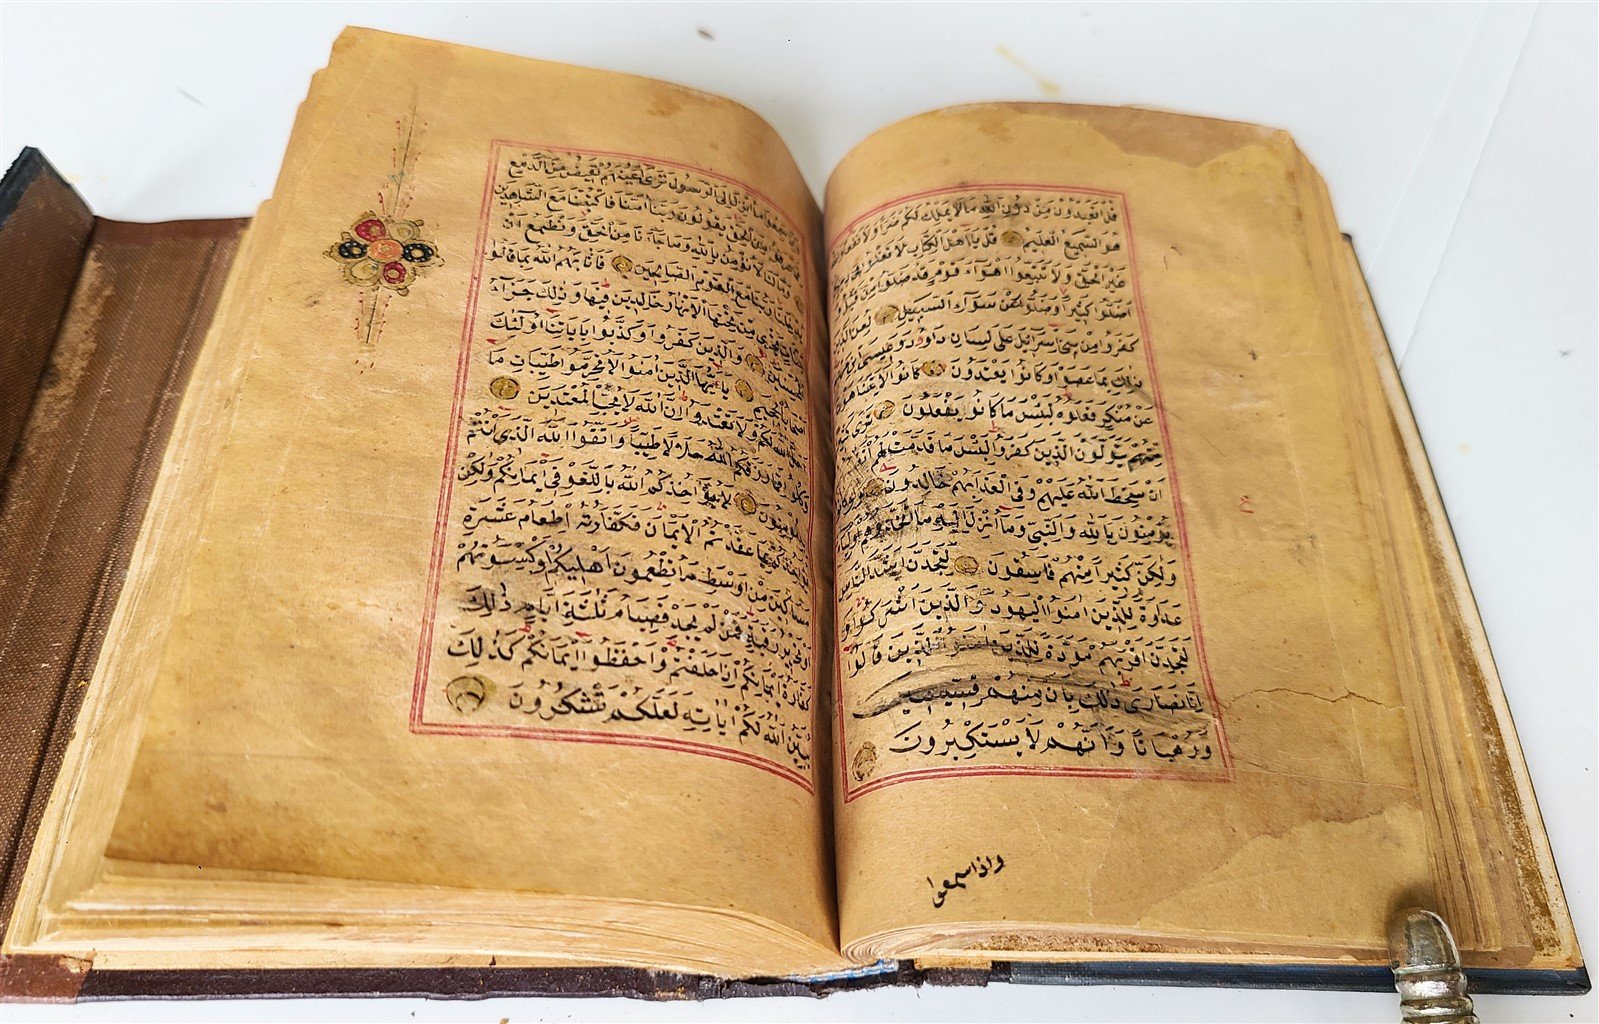 قل اتعبدون من دون الله ما لا يملك لكم ضرا ولا نفعا
هو السميع العليم قل يا اهل الكتاب لا تغلوا في
غير الحق ولا تتبعوا اهواء قوم قد ضلوا من قبل و
اضلوا كثيرا وضلوا عن سواء السبيل لعن الذين
كفروا من بني اسرائيل على لسان داود وعيسى ابن
ذلك بما عصوا وكانوا يعتدون كانوا لا يتناهون
عن منكر فعلوه لبئس ما كانوا يفعلون ترى
منهم يتولون الذين كفروا لبئس ما قدمت لهم
ان سخط الله عليهم وفي العذاب هم خالدون ولو كانوا
يؤمنون بالله والنبي وما انزل اليه ما اتخذوهم اولياء
ولكن كثيرا منهم فاسقون لتجدن اشد الناس
عداوة للذين امنوا اليهود والذين اشركوا و
لتجدن اقربهم مودة للذين امنوا الذين قالوا
انا نصارى ذلك بان منهم قسيسين
ورهبانا وانهم لا يستكبرون
ع
واذا سمعوا
واذا سمعوا ما انزل الى الرسول ترى اعينهم تفيض من الدمع
مما عرفوا من الحق يقولون ربنا امنا فاكتبنا مع الشاهدين
وما لنا لا نؤمن بالله وما جاءنا من الحق ونطمع ان
يدخلنا ربنا مع القوم الصالحين فاثابهم الله بما قالوا
جنات تجري من تحتها الانهار خالدين فيها وذلك جزاء
المحسنين والذين كفروا وكذبوا باياتنا اولئك
اصحاب الجحيم يا ايها الذين امنوا لا تحرموا طيبات ما
احل الله لكم ولا تعتدوا ان الله لا يحب المعتدين
وكلوا مما رزقكم الله حلالا طيبا واتقوا الله الذي انتم
به مؤمنون لا يؤاخذكم الله باللغو في ايمانكم ولكن
يؤاخذكم بما عقدتم الايمان فكفارته اطعام عشرة
مساكين من اوسط ما تطعمون اهليكم او كسوتهم
او تحرير رقبة فمن لم يجد فصيام ثلثة ايام ذلك
كفارة ايمانكم اذا حلفتم واحفظوا ايمانكم كذلك
يبين الله لكم اياته لعلكم تشكرون